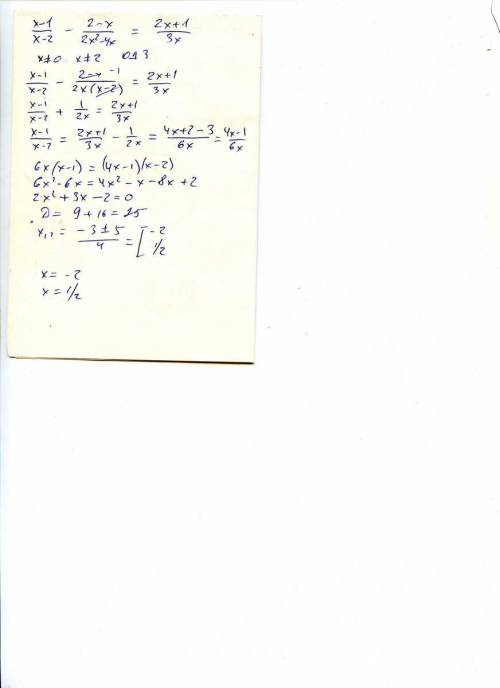 (x-1)/(x-2) - (2-x)/(2x²-4x) = (2x+1)/(3x)
x≠0 x≠2 ОДЗ
(x-1)/(x-2) - (2-x)⁻¹/(2x(x-2)) = (2x+1)/(3x)
(x-1)/(x-2) + 1/(2x) = (2x+1)/(3x)
(x-1)/(x-2) = (2x+1)/(3x) - 1/(2x) = (4x+2-3)/(6x) = (4x-1)/(6x)
6x(x-1) = (4x-1)(x-2)
6x²-6x = 4x²-x-8x+2
2x²+3x-2=0
D= 9+16=25
x₁,₂ = (-3±5)/4 = [ -2
1/2
x= -2
x= 1/2